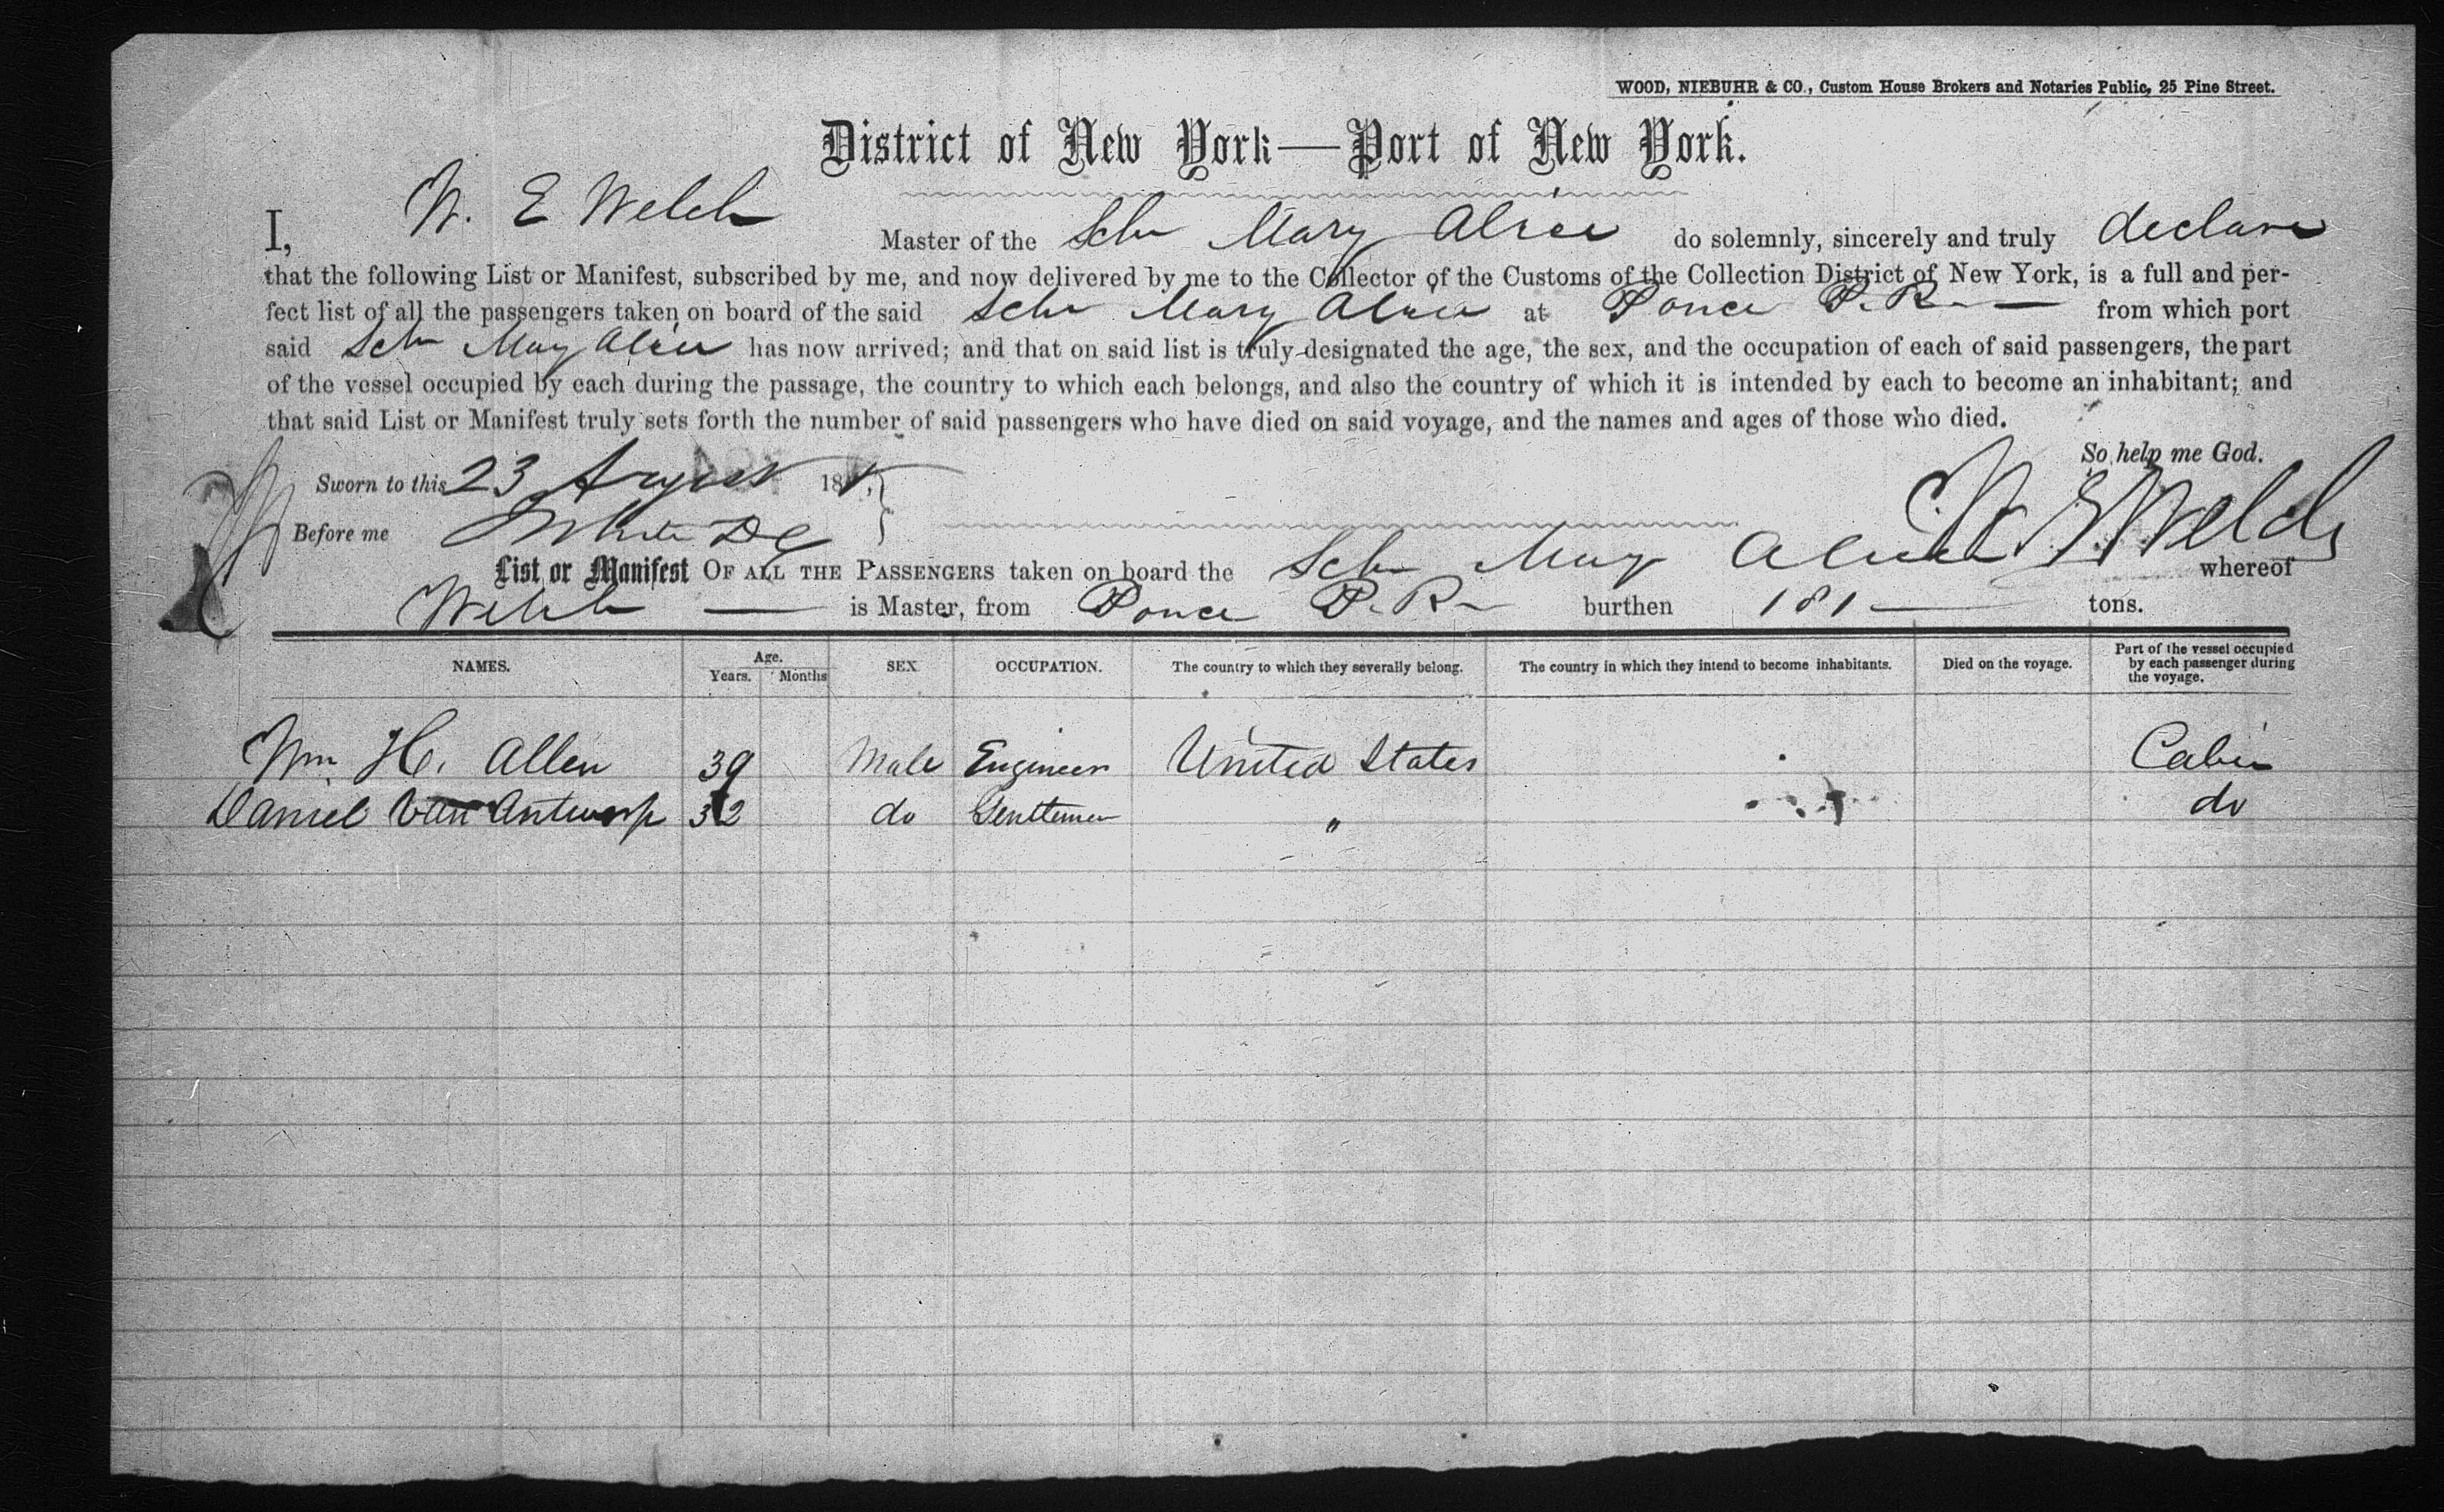 WOOD, NIEBUHR & CO., Custom House Brokers and Notaries Public, 25 Pine Street.
District of New York—Port of New York.
I, W. E Welch Master of the Schr Mary Alice do solemnly, sincerely and truly declare
that the following List or Manifest, subscribed by me, and now delivered by me to the Collector of the Customs of the Collection District of New York, is a full and per-
fect list of all the passengers taken on board of the said Schr Mary Alice at Ponce P. R. — from which port
said Schr Mary Alice has now arrived; and that on said list is truly designated the age, the sex, and the occupation of each of said passengers, the part
of the vessel occupied by each during the passage, the country to which each belongs, and also the country of which it is intended by each to become an inhabitant; and
that said List or Manifest truly sets forth the number of said passengers who have died on said voyage, and the names and ages of those who died.
So help me God.
Sworn to this 23 August 18
W E Welch
Before me
List or Manifest OF ALL THE PASSENGERS taken on board the Schr Mary Alice whereof
Welch — is Master, from Ponce P. R. burthen 181 — tons.
NAMES. Age. Years. Months SEX OCCUPATION. The country to which they severally belong. The country in which they intend to become inhabitants. Died on the voyage. Part of the vessel occupied by each passenger during the voyage.
Wm H. Allen 39 Male Engineer United States Cabin
Daniel Van Antwerp 32 do Gentleman " do